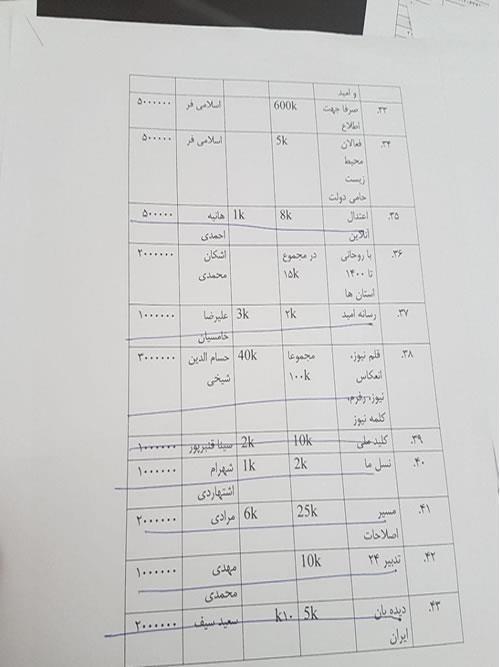 و امید
۳۳. صرفا جهت 600k اسلامی فر ۵۰۰۰۰۰
اطلاع
۳۴. فعالان 5k اسلامی فر ۵۰۰۰۰۰
محیط
زیست
حامی دولت
۳۵. اعتدال 8k 1k هانیه ۵۰۰۰۰۰
آنلاین احمدی
۳۶. با روحانی در مجموع اشکان ۲۰۰۰۰۰۰
تا ۱۴۰۰ ۱۵k محمدی
استان ها
۳۷. رسانه امید ۲k 3k علیرضا ۱۰۰۰۰۰۰
خامسیان
۳۸. قلم نیوز، مجموعا 40k حسام الدین ۳۰۰۰۰۰۰
انعکاس ۱۰۰k شیخی
نیوز، رفرم،
کلمه نیوز
۳۹. کلید ملی 10k 2k سینا قنبرپور ۱۰۰۰۰۰۰
۴۰. نسل ما 2k 1k شهرام ۱۰۰۰۰۰۰
اشتهاردی
۴۱. مسیر 25k 6k مرادی ۲۰۰۰۰۰۰
اصلاحات
۴۲. تدبیر ۲۴ 10k مهدی ۱۰۰۰۰۰۰
محمدی
۴۳. دیده بان 5k k۱۰ سعید سیف ۲۰۰۰۰۰۰
ایران